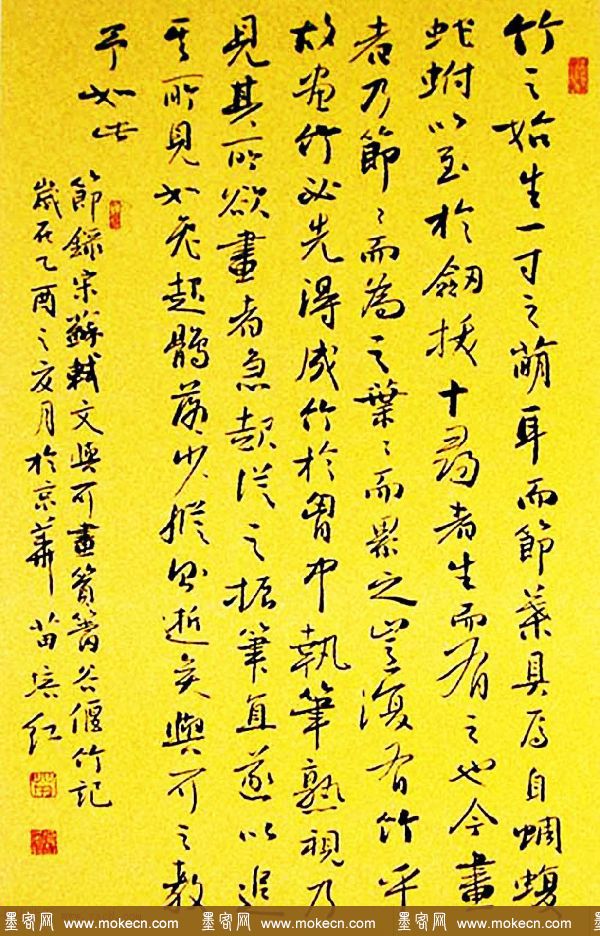 竹之始生一寸之萌耳而節葉具焉自蜩蝮
蛇蚹以至於劒拔十尋者生而有之也今畫
者乃節〻而為之葉〻而累之豈復有竹乎
故畫竹必先得成竹於胷中執筆熟視乃
見其所欲畫者急起從之振筆直遂以追
其所見如兔起鶻落少縱則逝矣與可之教
予如此
節錄宋蘇軾文與可畫篔簹谷偃竹記
歲在乙酉之月於京華 苗培紅
墨客网 www.mokecn.com 墨客网 www.mokecn.com 墨客网 www.mokecn.com